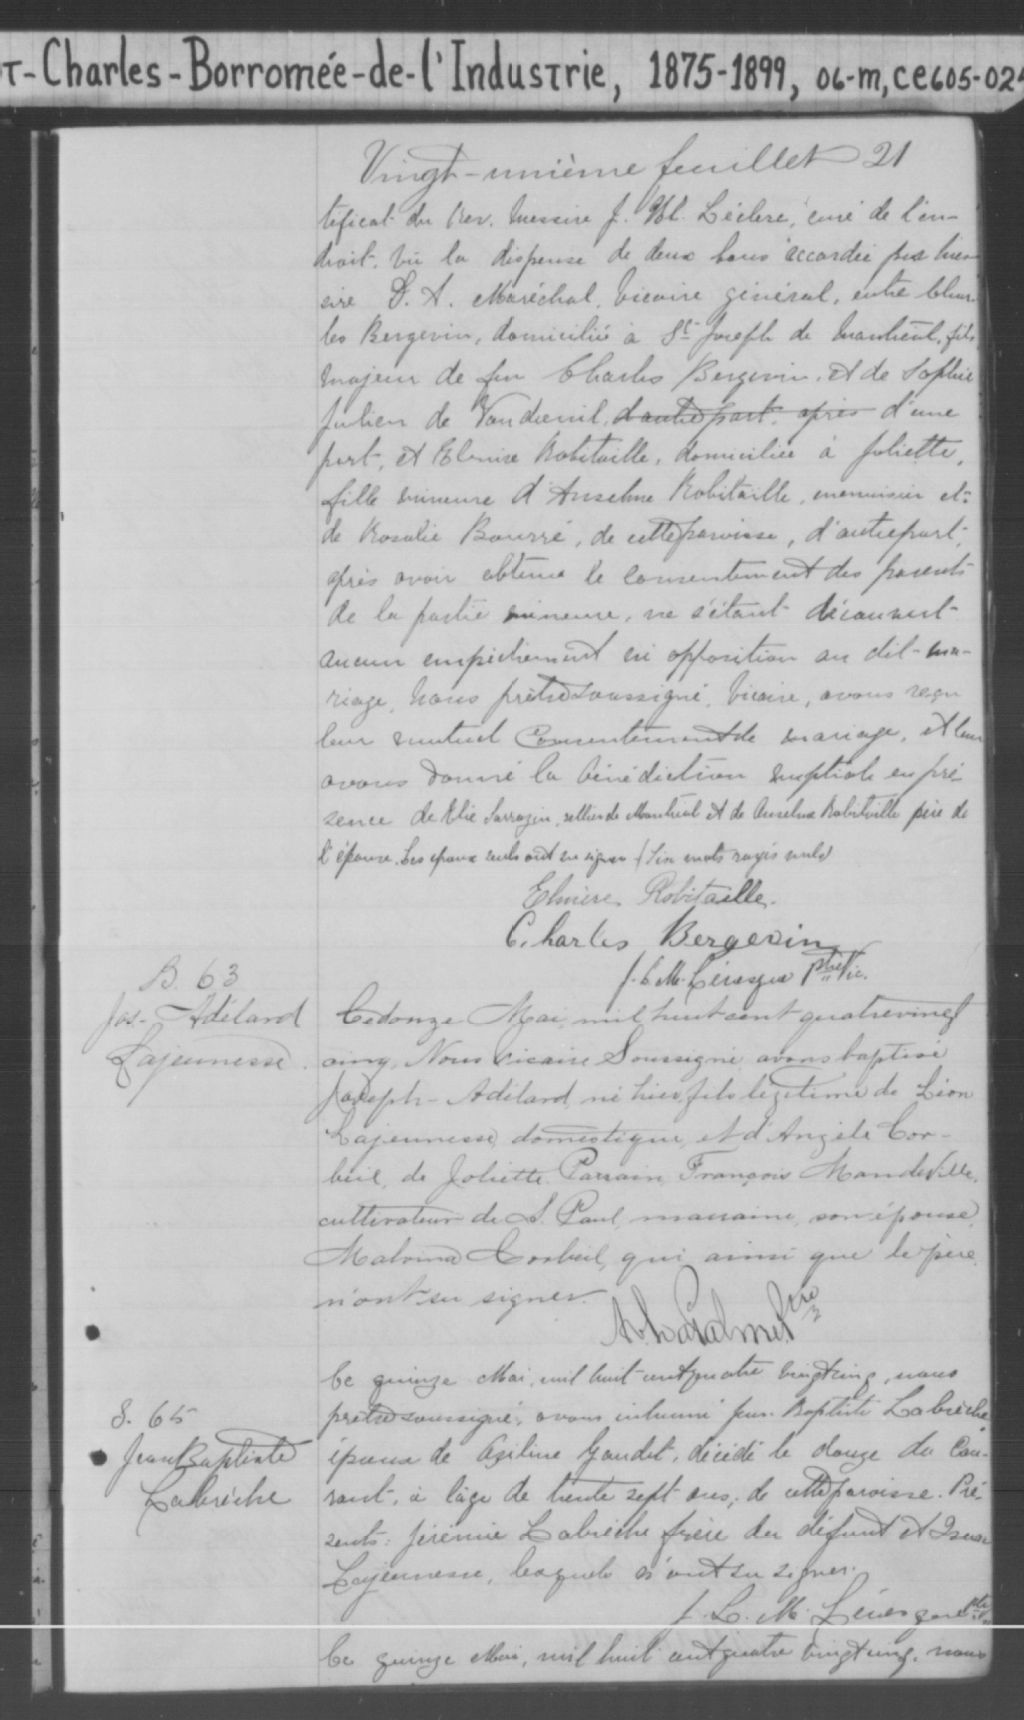 T-Charles-Borromée-de-l'Industrie, 1875-1899, 06-m, CE605-02
Vingt-unième feuillet 21
tificat du Rev. Messire J. Leclerc, curé de l'en-
droit. Vu la dispense de deux bans accordée par mes-
sire D. A. Maréchal, Vicaire général, entre Char-
les Bergevin, domicilié à St Joseph de Montréal, fils
majeur de feu Charles Bergevin, et de Sophie
Julien de Vaudreuil, d'autrepart, après d'une
part, et Elmire Robitaille, domiciliée à Joliette,
fille mineure d'Anselme Robitaille, menuisier et
de Rosalie Bourré, de cette paroisse, d'autrepart,
après avoir obtenu le consentement des parents
de la partie mineure, ne s'étant découvert
aucun empêchement ni opposition au dit ma-
riage, Nous prêtre soussigné, Vicaire, avons reçu
leur mutuel consentement de mariage, et leur
avons donné la bénédiction nuptiale en pré-
sence de Elie Sarrazin, sellier de Montréal et de Anselme Robitaille père de
l'épouse. Les époux seuls ont su signer (six mots rayés nuls)
Elmire Robitaille.
Charles Bergevin
J. L. M. Lévesque ptre Vic.
B. 63
Jos-Adélard
Lajeunesse.
Ce onze Mai, mil huit cent quatrevingt
cinq, Nous vicaire Soussigné avons baptisé
Joseph-Adélard, né hier, fils légitime de Léon
Lajeunesse, domestique, et d'Angèle Cor-
beil, de Joliette. Parrain, François Mandeville,
cultivateur de S. Paul, marraine, son épouse,
Malvina Corbeil, qui ainsi que le père
n'ont su signer.
ptre
S. 65
Jean Baptiste
Labrèche
Ce quinze Mai, mil huit cent quatre vingt cinq, nous
prêtre soussigné, avons inhumé Jean Baptiste Labrèche
époux de Aziline Gaudet, décédé le douze du cou-
rant, à l'âge de trente sept ans, de cette paroisse. Pré-
sents: Jérémie Labrèche frère du défunt et
Lajeunesse, lesquels n'ont su signer.
J. L. M. Lévesque ptre
Ce quinze Mai, mil huit cent quatre vingt cinq, nous